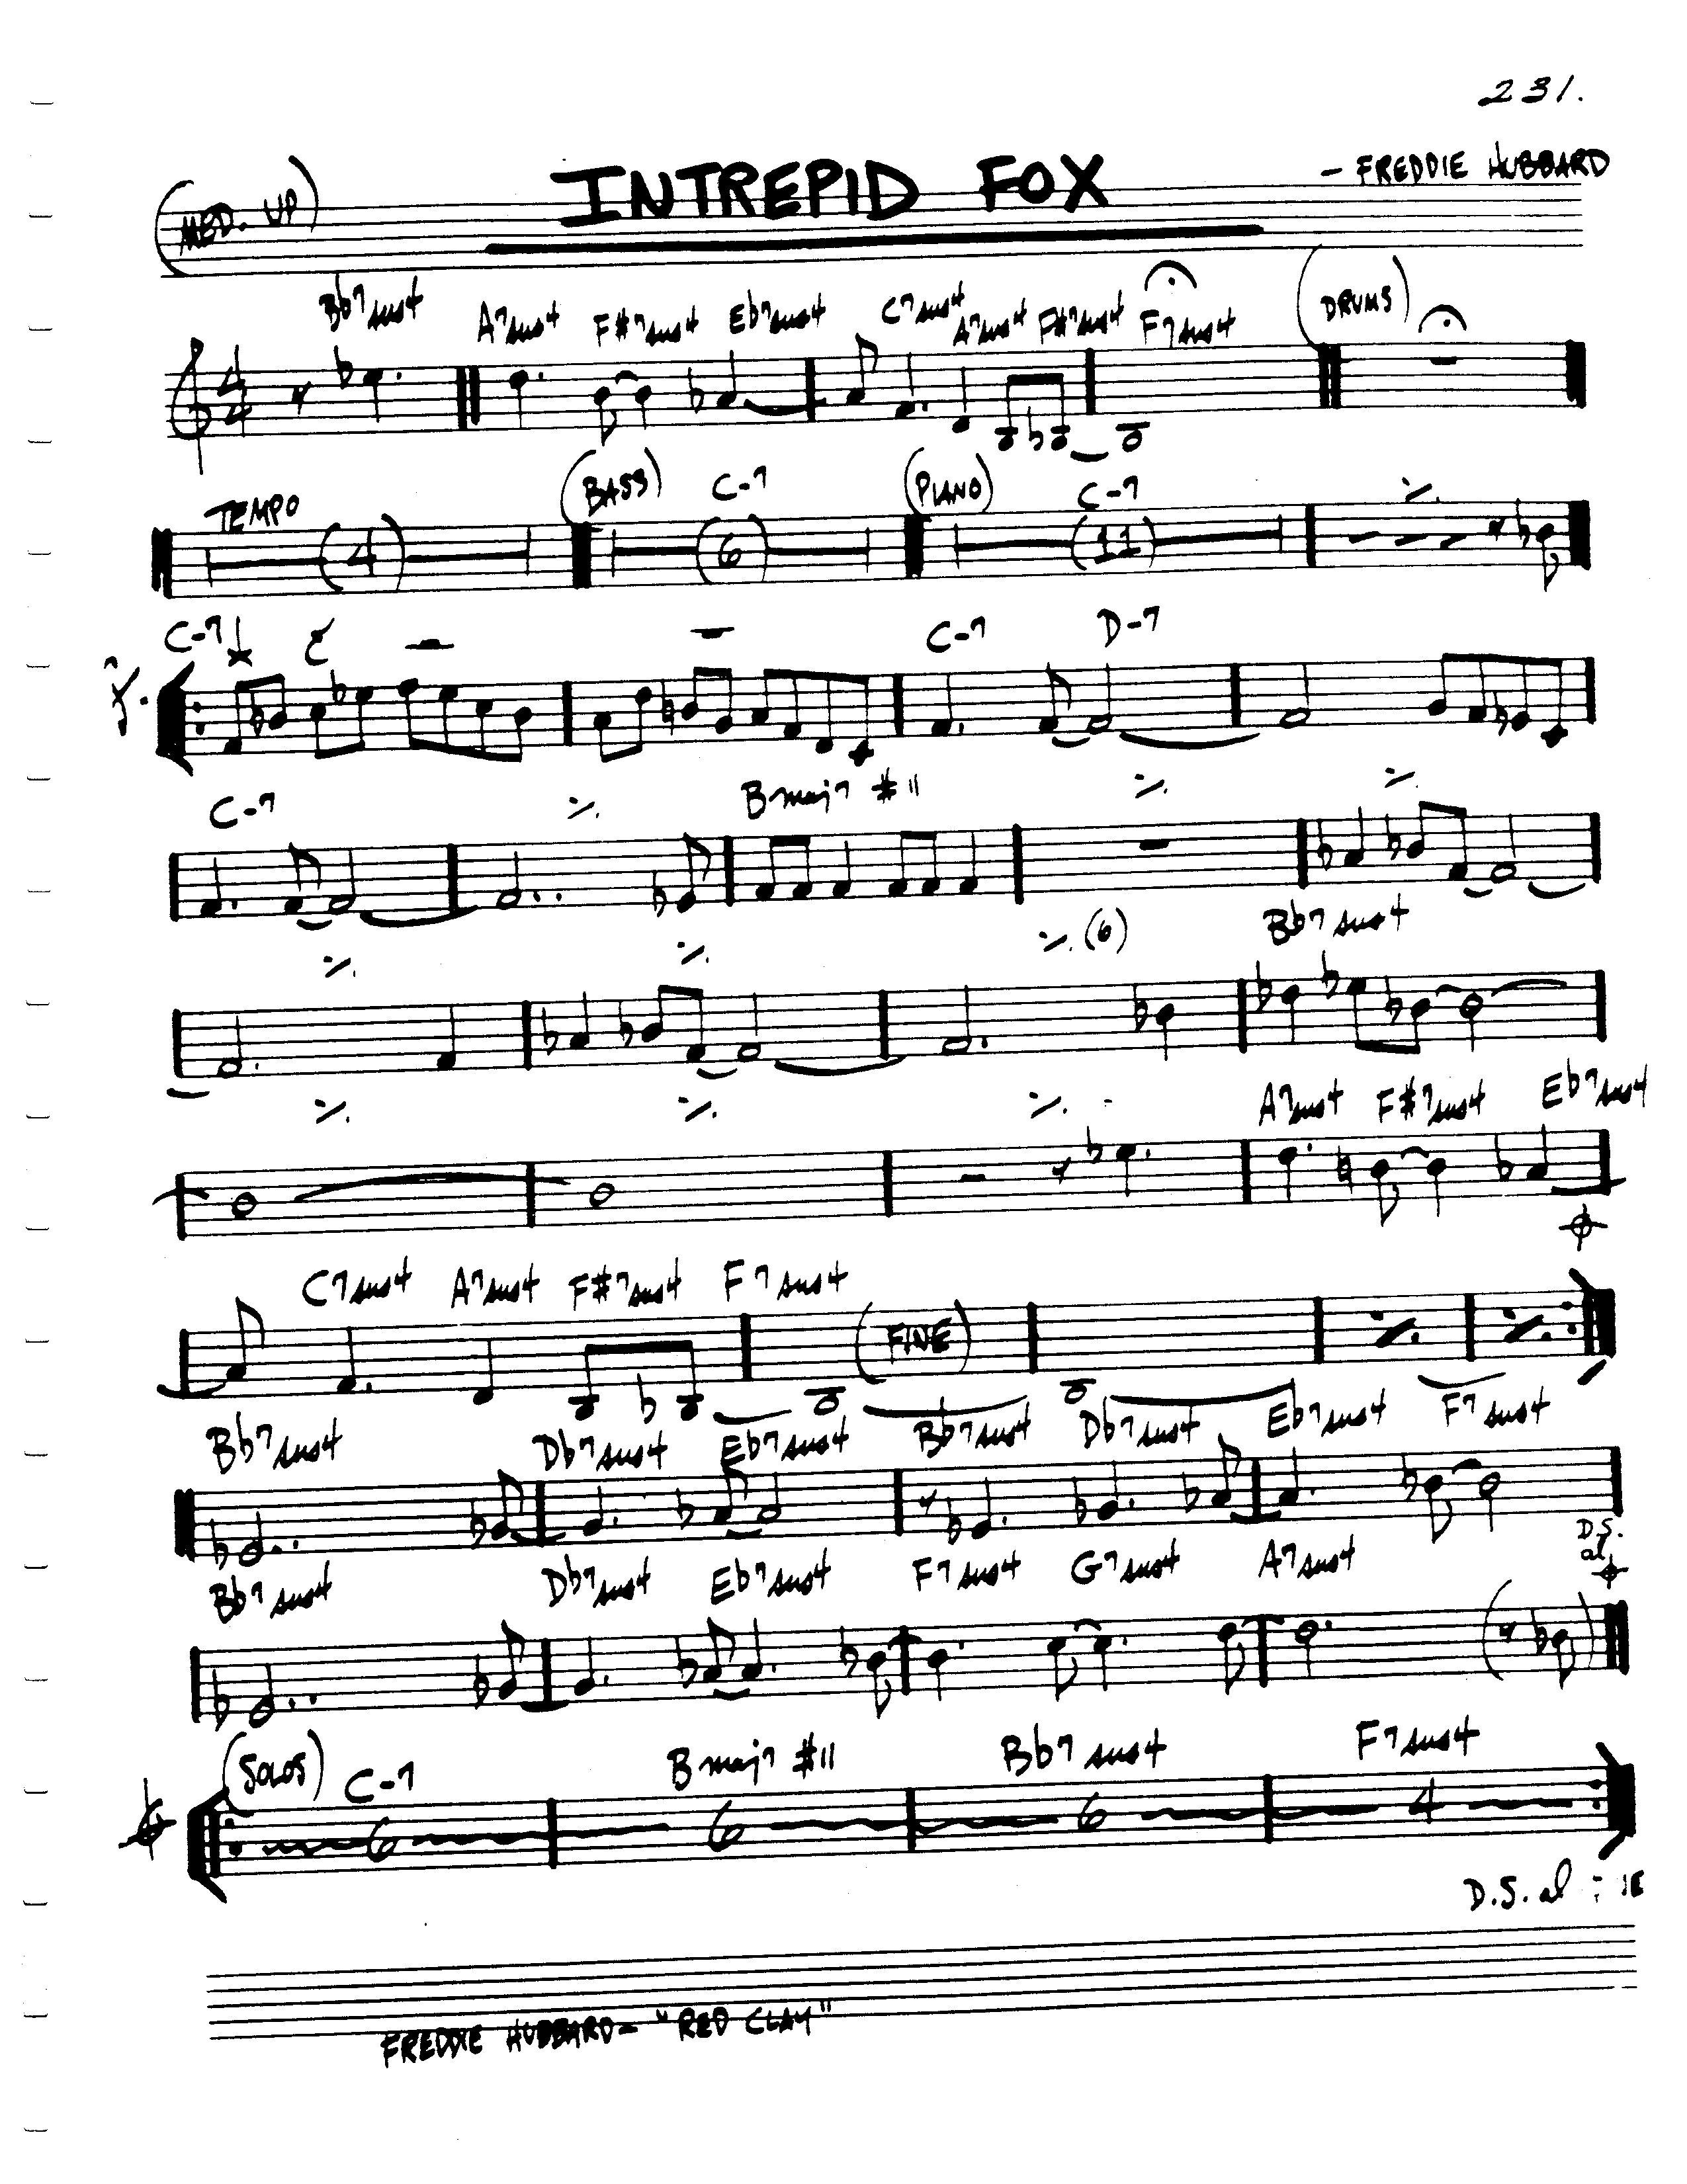 231.
(MED. UP) INTREPID FOX — FREDDIE HUBBARD
Bb7sus4 A7sus4 F#7sus4 Eb7sus4 C7sus4 A7sus4 F#7sus4 F7sus4 (DRUMS)
4/4
TEMPO (BASS) C-7 (PIANO) C-7
(4) (6) (11)
C-7 C-7 D-7
C-7 Bmaj7 #11
(6) Bb7sus4
A7sus4 F#7sus4 Eb7sus4
C7sus4 A7sus4 F#7sus4 F7sus4
(FINE)
Bb7sus4 Db7sus4 Eb7sus4 Bb7sus4 Db7sus4 Eb7sus4 F7sus4
D.S. al
Bb7sus4 Db7sus4 Eb7sus4 F7sus4 G7sus4 A7sus4
(SOLOS) C-7 Bmaj7 #11 Bb7sus4 F7sus4
6 6 6 4
D.S. al
FREDDIE HUBBARD- "RED CLAY"